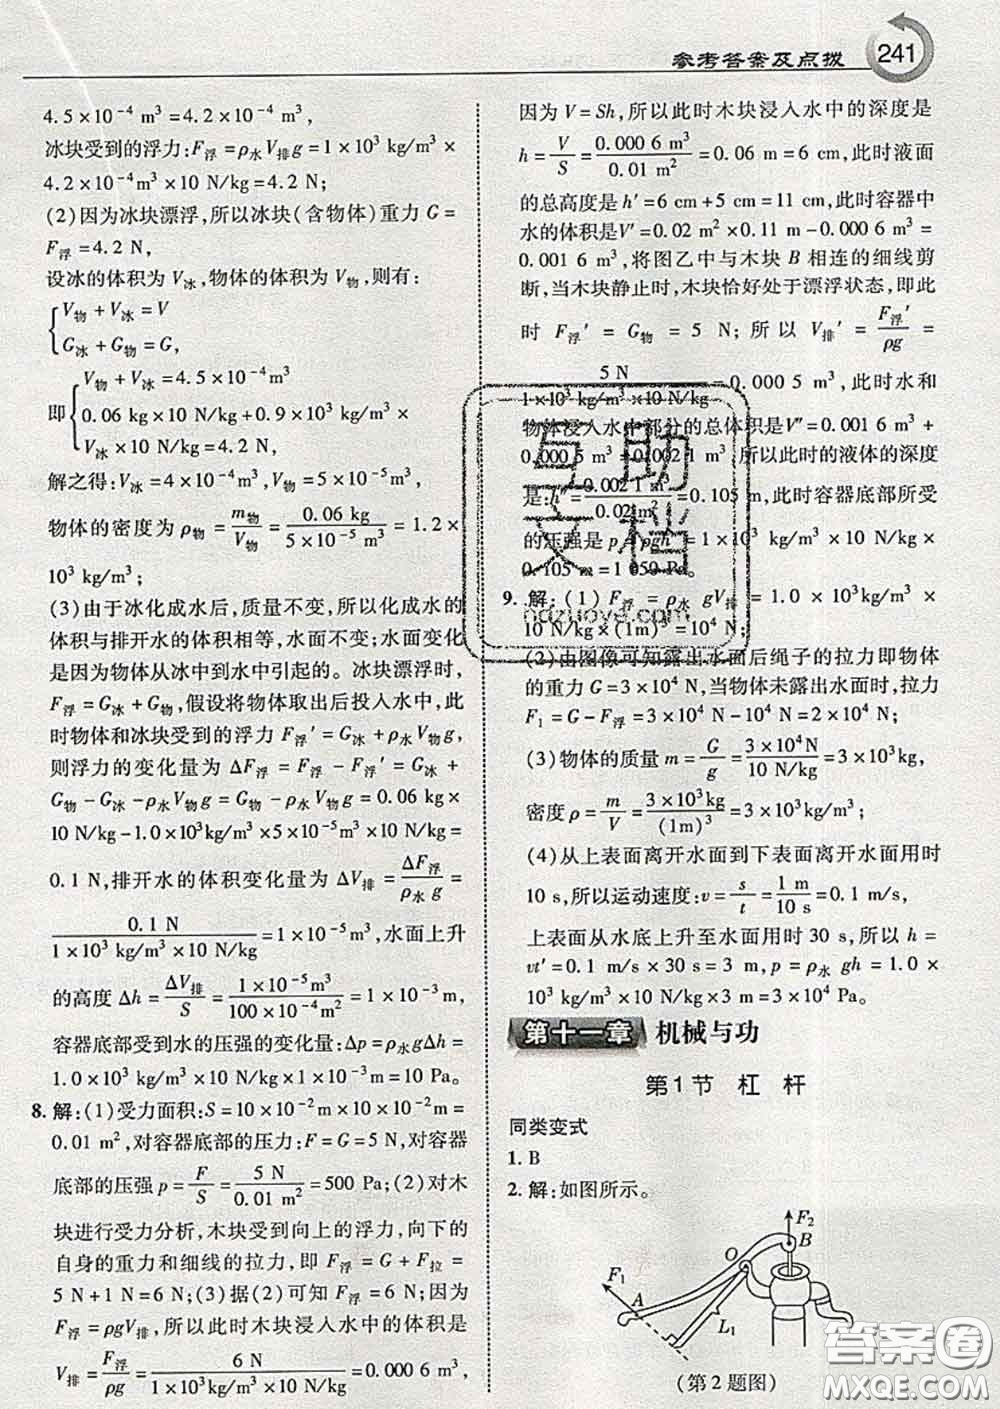 参考答案及点拨 241
4.5×10⁻⁴ m³=4.2×10⁻⁴ m³,
冰块受到的浮力:F浮=ρ水V排g=1×10³ kg/m³×
4.2×10⁻⁴m³×10 N/kg=4.2 N;
(2)因为冰块漂浮,所以冰块(含物体)重力 G=
F浮=4.2 N,
设冰的体积为 V冰,物体的体积为 V物,则有:
{V物+V冰=V
G冰+G物=G,
即{V物+V冰=4.5×10⁻⁴m³
0.06 kg×10 N/kg+0.9×10³ kg/m³×
V冰×10 N/kg=4.2 N,
解之得:V冰=4×10⁻⁴m³,V物=5×10⁻⁵m³,
物体的密度为 ρ物=m物/V物=0.06 kg/5×10⁻⁵ m³=1.2×
10³ kg/m³;
(3)由于冰化成水后,质量不变,所以化成水的
体积与排开水的体积相等,水面不变;水面变化
是因为物体从冰中到水中引起的。冰块漂浮时,
F浮=G冰+G物,假设将物体取出后投入水中,此
时物体和冰块受到的浮力 F浮′=G冰+ρ水V物g,
则浮力的变化量为 ΔF浮=F浮-F浮′=G冰+
G物-G冰-ρ水V物g=G物-ρ水V物g=0.06 kg×
10 N/kg-1.0×10³ kg/m³×5×10⁻⁵m³×10 N/kg=
0.1 N,排开水的体积变化量为 ΔV排=ΔF浮/ρ水g=
0.1 N/1×10³ kg/m³×10 N/kg=1×10⁻⁵m³,水面上升
的高度 Δh=ΔV排/S=1×10⁻⁵m³/100×10⁻⁴m²=1×10⁻³m,
容器底部受到水的压强的变化量:Δp=ρ水gΔh=
1.0×10³ kg/m³×10 N/kg×1×10⁻³m=10 Pa。
8. 解:(1)受力面积:S=10×10⁻²m×10×10⁻²m=
0.01 m²,对容器底部的压力:F=G=5 N,对容器
底部的压强 p=F/S=5 N/0.01 m²=500 Pa;(2)对木
块进行受力分析,木块受到向上的浮力,向下的
自身的重力和细线的拉力,即 F浮=G+F拉=
5 N+1 N=6 N;(3)据(2)可知 F浮=6 N;因为
F浮=ρgV排,所以此时木块浸入水中的体积是
V排=F浮/ρg=6 N/1×10³ kg/m³×10 N/kg=0.000 6 m³,
因为 V=Sh,所以此时木块浸入水中的深度是
h=V/S=0.000 6 m³/0.01 m²=0.06 m=6 cm,此时液面
的总高度是 h′=6 cm+5 cm=11 cm,此时容器中
水的体积是V′=0.02 m²×0.11 m-0.000 6 m³=
0.001 6 m³,将图乙中与木块 B 相连的细线剪
断,当木块静止时,木块恰好处于漂浮状态,即此
时 F浮′=G物=5 N;所以 V排′=F浮′/ρg=
5 N/1×10³ kg/m³×10 N/kg=0.000 5 m³,此时水和
物体浸入水中部分的总体积是V″=0.001 6 m³+
0.000 5 m³=0.002 1 m³,所以此时的液体的深度
是:h″=0.002 1 m³/0.02 m²=0.105 m,此时容器底部所受
的压强是 p=ρgh″=1×10³ kg/m³×10 N/kg×
0.105 m=1 050 Pa。
9. 解:(1) F浮=ρ水 gV排=1.0×10³ kg/m³×
10 N/kg×(1m)³=10⁴ N;
(2)由图像可知露出水面后绳子的拉力即物体
的重力 G=3×10⁴ N,当物体未露出水面时,拉力
F₁=G-F浮=3×10⁴ N-10⁴ N=2×10⁴ N;
(3)物体的质量 m=G/g=3×10⁴N/10 N/kg=3×10³ kg,
密度 ρ=m/V=3×10³kg/(1m)³=3×10³ kg/m³;
(4)从上表面离开水面到下表面离开水面用时
10 s,所以运动速度:v=s/t=1 m/10 s=0.1 m/s,
上表面从水底上升至水面用时 30 s,所以 h=
vt′=0.1 m/s×30 s=3 m,p=ρ水 gh=1.0×
10³ kg/m³×10 N/kg×3 m=3×10⁴ Pa。
第十一章 机械与功
第1节 杠 杆
同类变式
1. B
2. 解:如图所示。
F₂
O B
F₁
A
L₁
(第2题图)
互助
文档
hdzuoye.com
答案圈
MXQE.COM